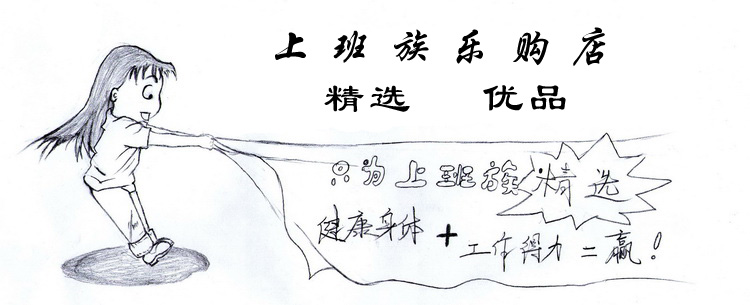 上班族乐购店
精选 优品
只为上班族精选
健康身体+工作得力=赢!